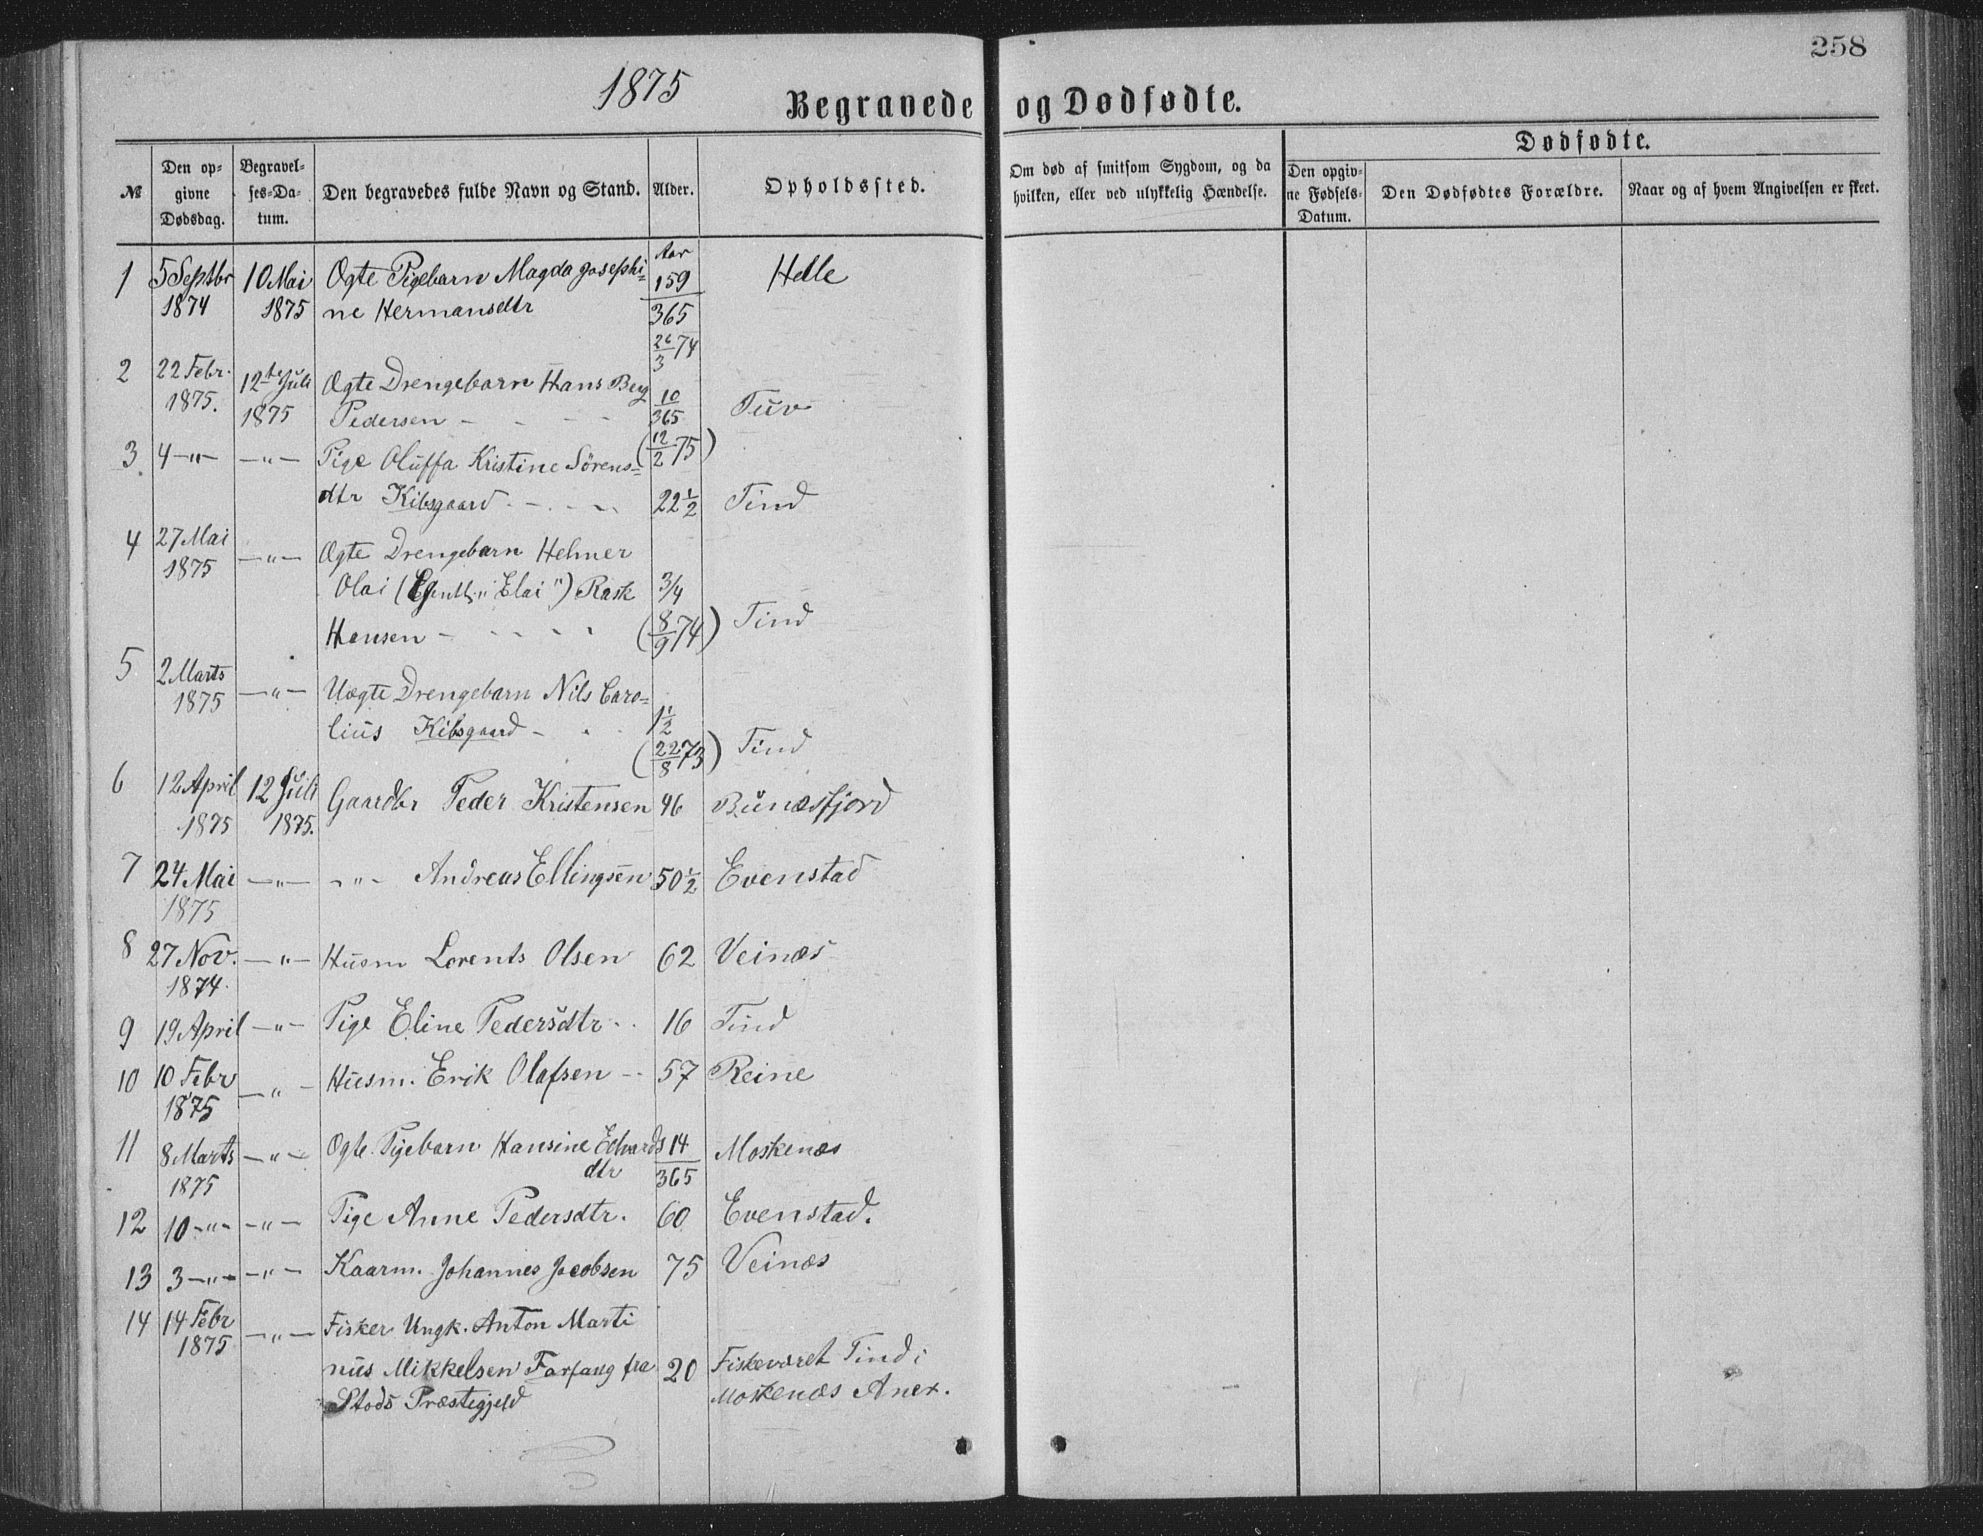 258
1875
Begravede og Dødfødte.
Dødfødte.
№ Den opgivne Dødsdag. Begravelses-Datum. Den begravedes fulde Navn og Stand. Alder. Opholdssted. Om død af smitsom Sygdom, og da hvilken, eller ved ulykkelig Hændelse. Den opgivne Fødsels-Datum. Den Dødfødtes Forældre. Naar og af hvem Angivelsen er skeet.
Aar
1 5 Septbr 10 Mai Ægte Pigebarn Magda Josephi- 159 Helle
1874 1875 ne Hermansdtr 365
26/3 74
2 22 Febr. 12te Juli Ægte Drengebarn Hans Berg 10
1875. 1875 Pedersen - - - 365 Tuv
(12/2 75)
3 4 -"- -"- Pige Oluffa Kristine Sörens-
dtr Kibsgaard - - - 22 1/2 Tind
4 27 Mai -"- Ægte Drengebarn Helmer
1875 Olai (Egentl. "Elai") Rask 3/4
Hansen - - - - (8/9 74) Tind
5 2 Marts -"- Uægte Drengebarn Nils Caro-
1875 lius Kibsgaard - - 1 1/2
(22/8 73) Tind
6 12 April 12 Juli Gaardbr Peder Kristensen 46 Bunæsfjord
1875 1875.
7 24 Mai -"- -"- Andreas Ellingsen 50 1/2 Evenstad
1875
8 27 Nov. -"- Husm Lorents Olsen 62 Veinæs
1874.
9 19 April -"- Pige Eline Pedersdtr - 16 Tind
10 10 Febr -"- Husm. Erik Olafsen - 57 Reine
1875
11 8 Marts -"- Ægte Pigebarn Hansine Edvards 14 Moskenæs
1875 dtr 365
12 10 -"- -"- Pige Anne Pedersdtr. 60 Evenstad.
13 3 -"- -"- Kaarm. Johannes Jacobsen 75 Veinæs
14 14 Febr -"- Fisker Ungk. Anton Marti
1875 nus Mikkelsen Farfang fra 20 Fiskeværet Tind i
Stods Præstegjeld Moskenæs Anex.